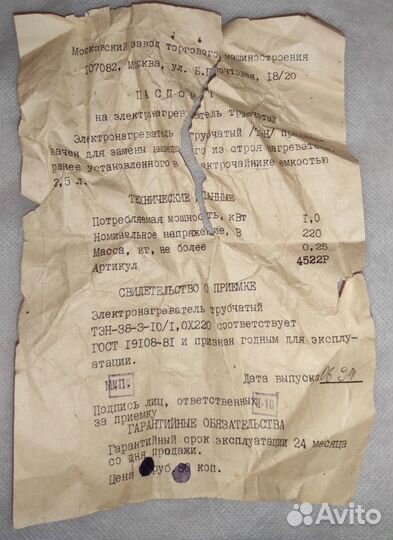 Московский завод торгового машиностроения
107082, Москва, ул. Б.Почтовая, 18/20
ПАСПОРТ
на электронагреватель трубчатый
Электронагреватель трубчатый /ТЭН/ предназ-
начен для замены вышедшего из строя нагревателя,
ранее установленного в электрочайнике емкостью
2,5 л.
ТЕХНИЧЕСКИЕ ДАННЫЕ
Потребляемая мощность, кВт 1,0
Номинальное напряжение, В 220
Масса, кг, не более 0,25
Артикул 4522Р
СВИДЕТЕЛЬСТВО О ПРИЕМКЕ
Электронагреватель трубчатый
ТЭН-38-3-10/1,0Х220 соответствует
ГОСТ 19108-81 и признан годным для эксплу-
атации.
Дата выпуска
Подпись лиц, ответственных
за приемку
ГАРАНТИЙНЫЕ ОБЯЗАТЕЛЬСТВА
Гарантийный срок эксплуатации 24 месяца
со дня продажи.
Цена руб. 80 коп.
Avito